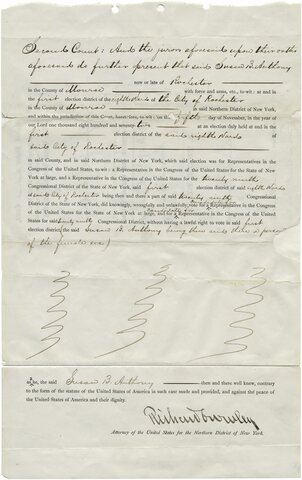 Second Count: And the jurors aforesaid upon their oaths
aforesaid do further present that said Susan B. Anthony
now or late of Rochester
in the County of Monroe with force and arms, etc., to-wit: at and in
the first election district of the eighth Ward of the City of Rochester
in the County of Monroe in said Northern District of New York,
and within the jurisdiction of this Court, heretofore, to-wit: on the fifth day of November, in the year of
our Lord one thousand eight hundred and seventy two at an election duly held at and in the
first election district of the said eighth Ward of
said City of Rochester
in said County, and in said Northern District of New York, which said election was for Representatives in the Congress
of the United States, to-wit: a Representative in the Congress of the United States for the State of New York at
large, and a Representative in the Congress of the United States for the twenty ninth
Congressional District of the State of New York, said first election district of said eighth Ward
of said City of Rochester being then and there a part of said twenty ninth Congressional
District of the State of New York, did knowingly, wrongfully and unlawfully vote for a Representative in the Congress
of the United States for the State of New York at large, and for a Representative in the Congress of the United
States for said twenty ninth Congressional District, without having a lawful right to vote in said first
election district, the said Susan B. Anthony being then and there a person
of the female sex)
as he, the said Susan B. Anthony then and there well knew, contrary
to the form of the statute of the United States of America in such case made and provided, and against the peace of
the United States of America and their dignity.
Richard Crowley
Attorney of the United States for the Northern District of New York.